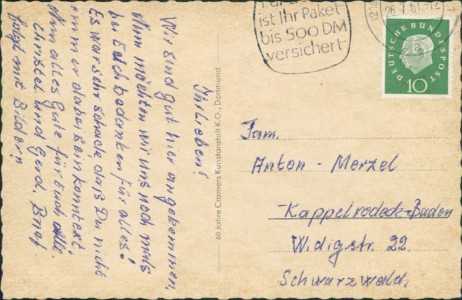 ist Ihr Paket
bis 500 DM
versichert
26.7.61.-12
DEUTSCHE BUNDESPOST
10
Ihr Lieben!
Wir sind gut hier angekommen,
Nun möchten wir uns nochmals
bei Euch bedanken für alles!
Es war sehr schade daß Du nicht
immer dabei sein konntest.
Nun alles Gute für Euch alle.
Christel und Gerd. Brief
folgt mit Bildern
60 Jahre Cramers Kunstanstalt K.G., Dortmund
Fam.
Anton - Merzel
Kappelrodeck-Baden
Widigstr. 22.
Schwarzwald,